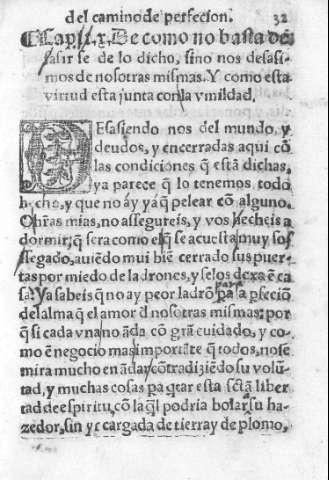 del camino de perfecion. 32
¶ Cap. ix. De como no basta de
sasirse de lo dicho, sino nos desasi-
mos de nosotras mismas. Y como esta
virtud esta junta con la vmildad.
DEsasiendo nos del mundo, y
deudos, y encerradas aqui cō
las condiciones q̄ estā dichas.
ya parece q̄ lo tenemos todo
hecho, y que no ay yaq̄ pelear cō alguno.
O hr̄as mias, no assegureis, y vos hecheis a
dormir, q̄ sera como el q̄ se acuesta muy sos
segado, auiēdo mui biē cerrado sus puer-
tas por miedo de ladrones, y se los dexa ē ca
sa. Ya sabeis q̄ no ay peor ladrō para la pfeciō
del alma q̄ el amor d̄ nosotras mismas: por
q̄ si cada vna no āda cō grā cuidado, y co-
mo ē negocio mas importāte q̄ todos, no se
mira mucho en āda y cōtradiziēdo su volū-
tad, y muchas cosas pa q̄tar esta sctā liber
tad de espiritu, cō la q̄l podria bolar su ha-
zedor, sin yr cargada de tierra y de plomo,